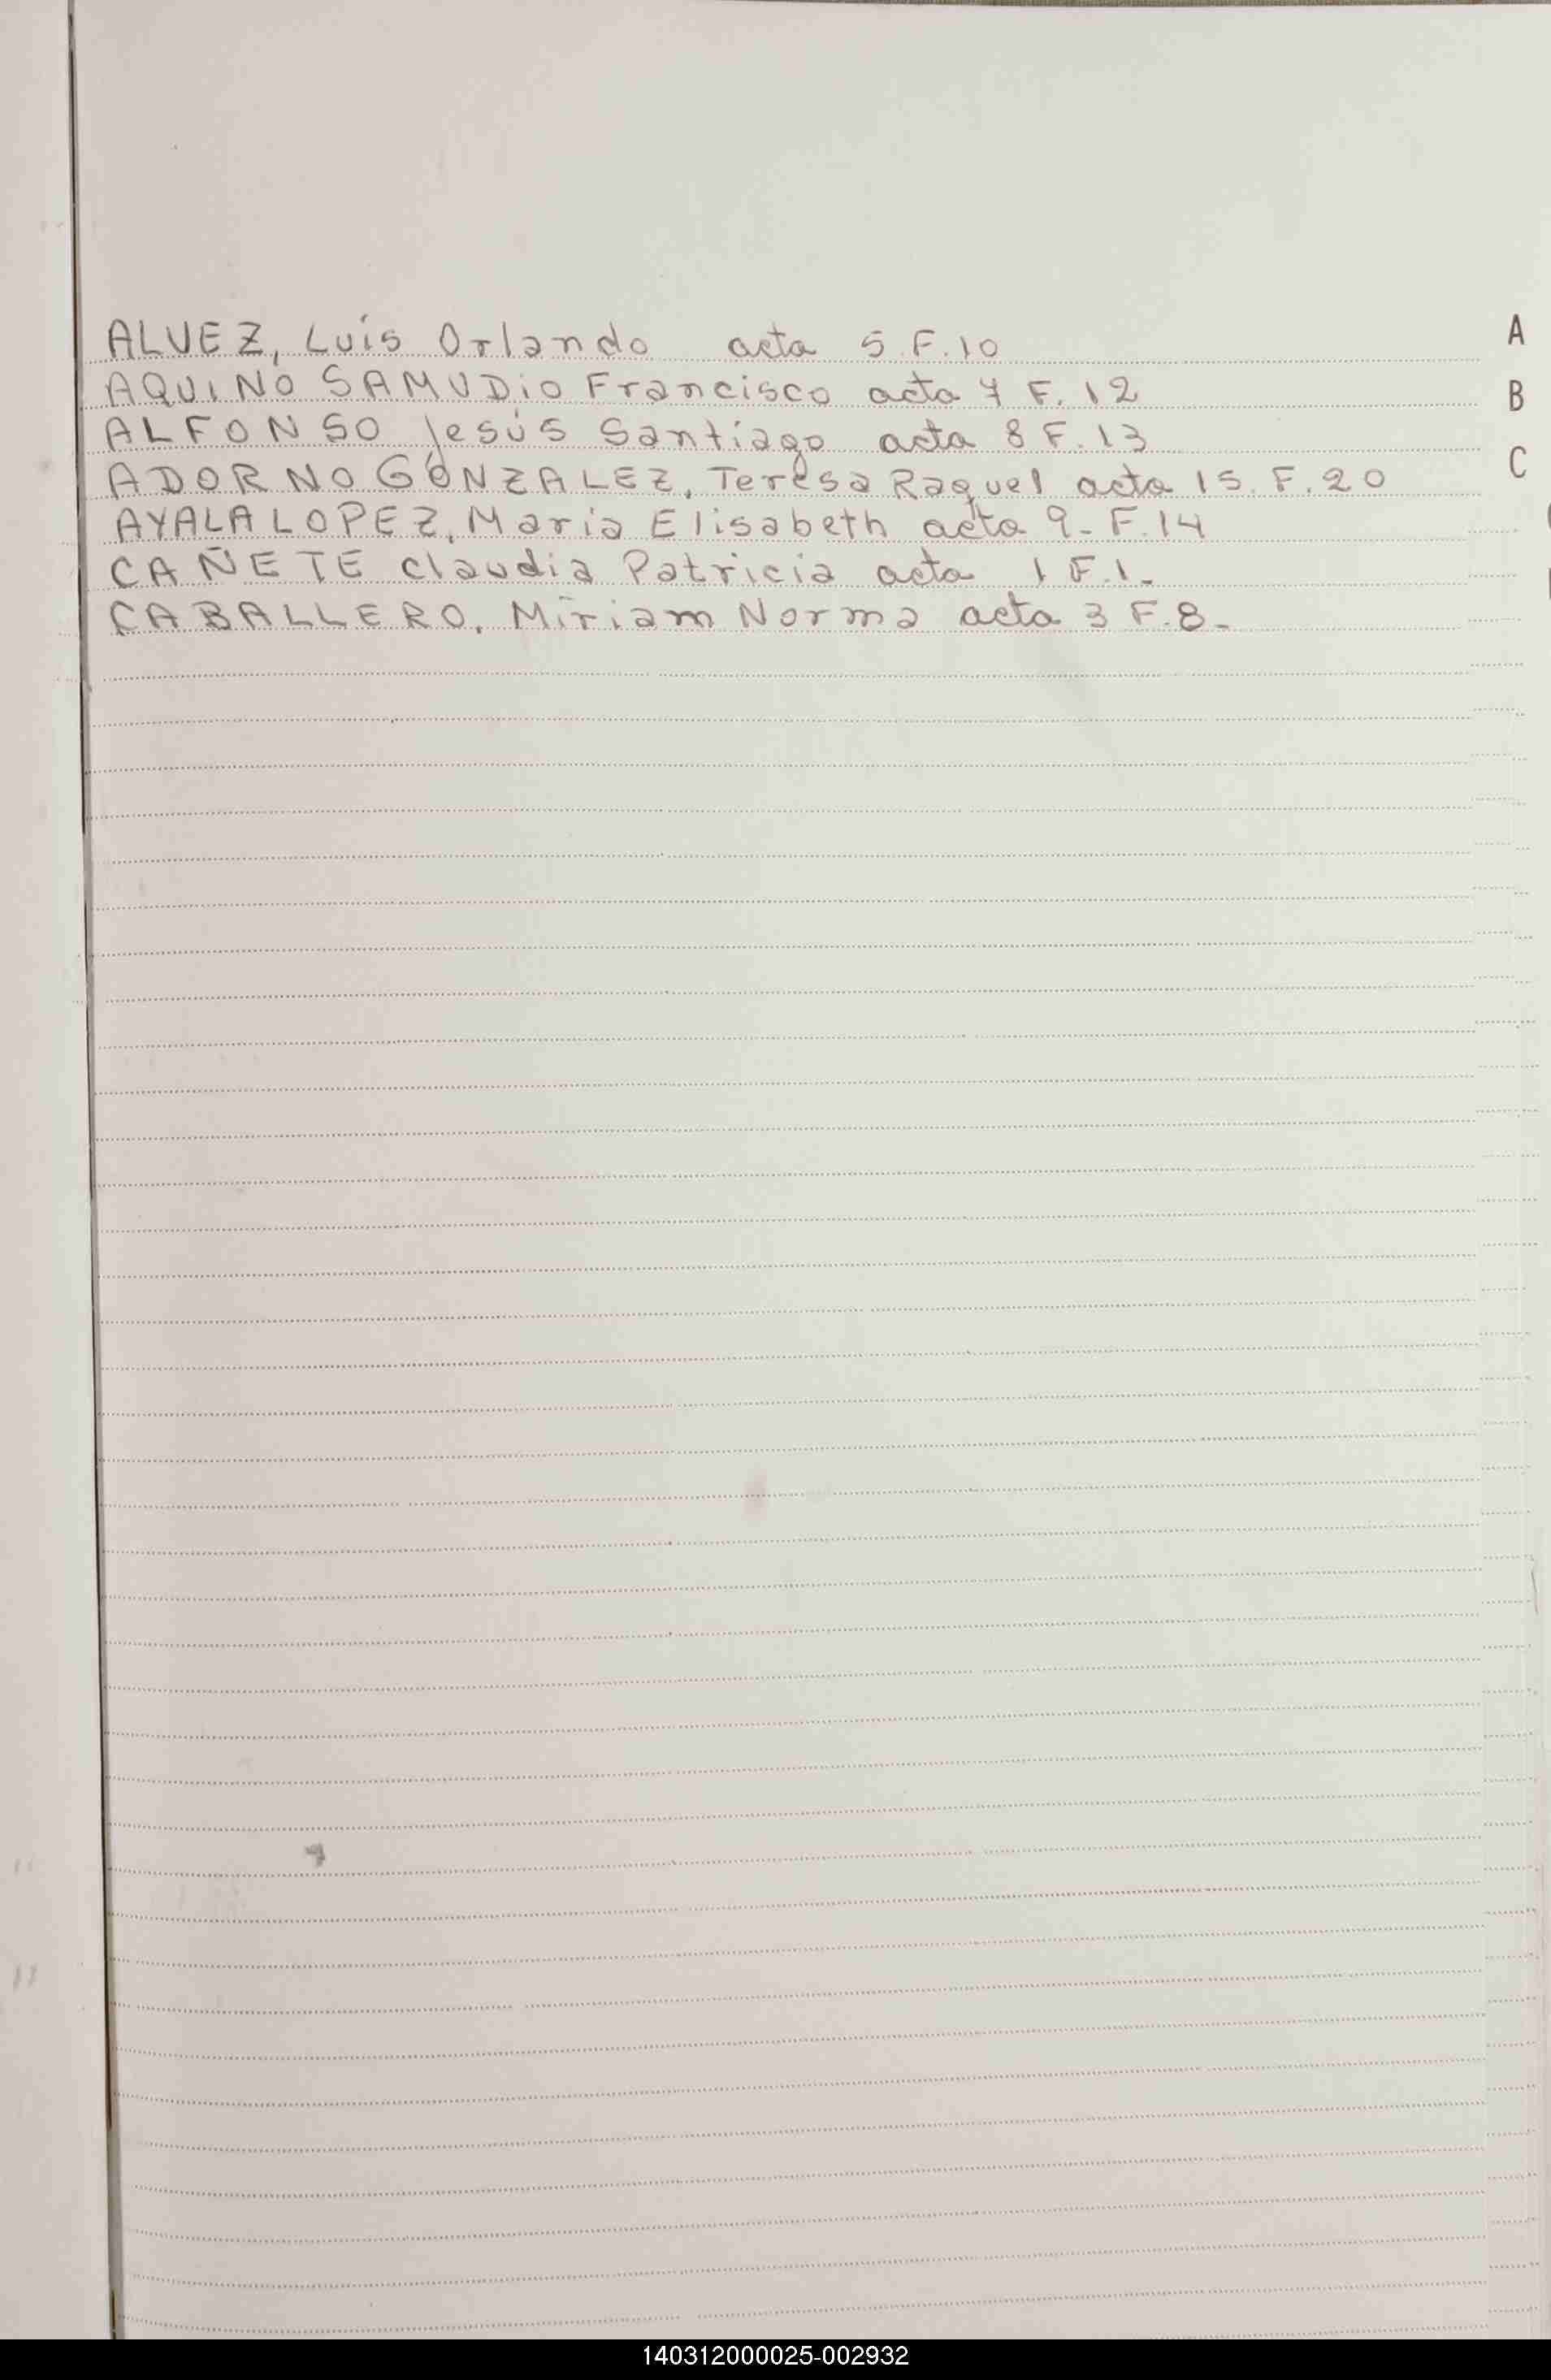 ALVEZ, Luis Orlando acta 5 F.10
AQUINO SAMUDIO Francisco acta 7 F.12
ALFONSO Jesús Santiago acta 8 F.13
ADORNO GONZALEZ, Teresa Raquel acta 15. F.20
AYALA LOPEZ, Maria Elisabeth acta 9- F.14
CAÑETE Claudia Patricia acta 1 F.1-
CABALLERO, Miriam Norma acta 3 F.8-
A
B
C
140312000025-002932